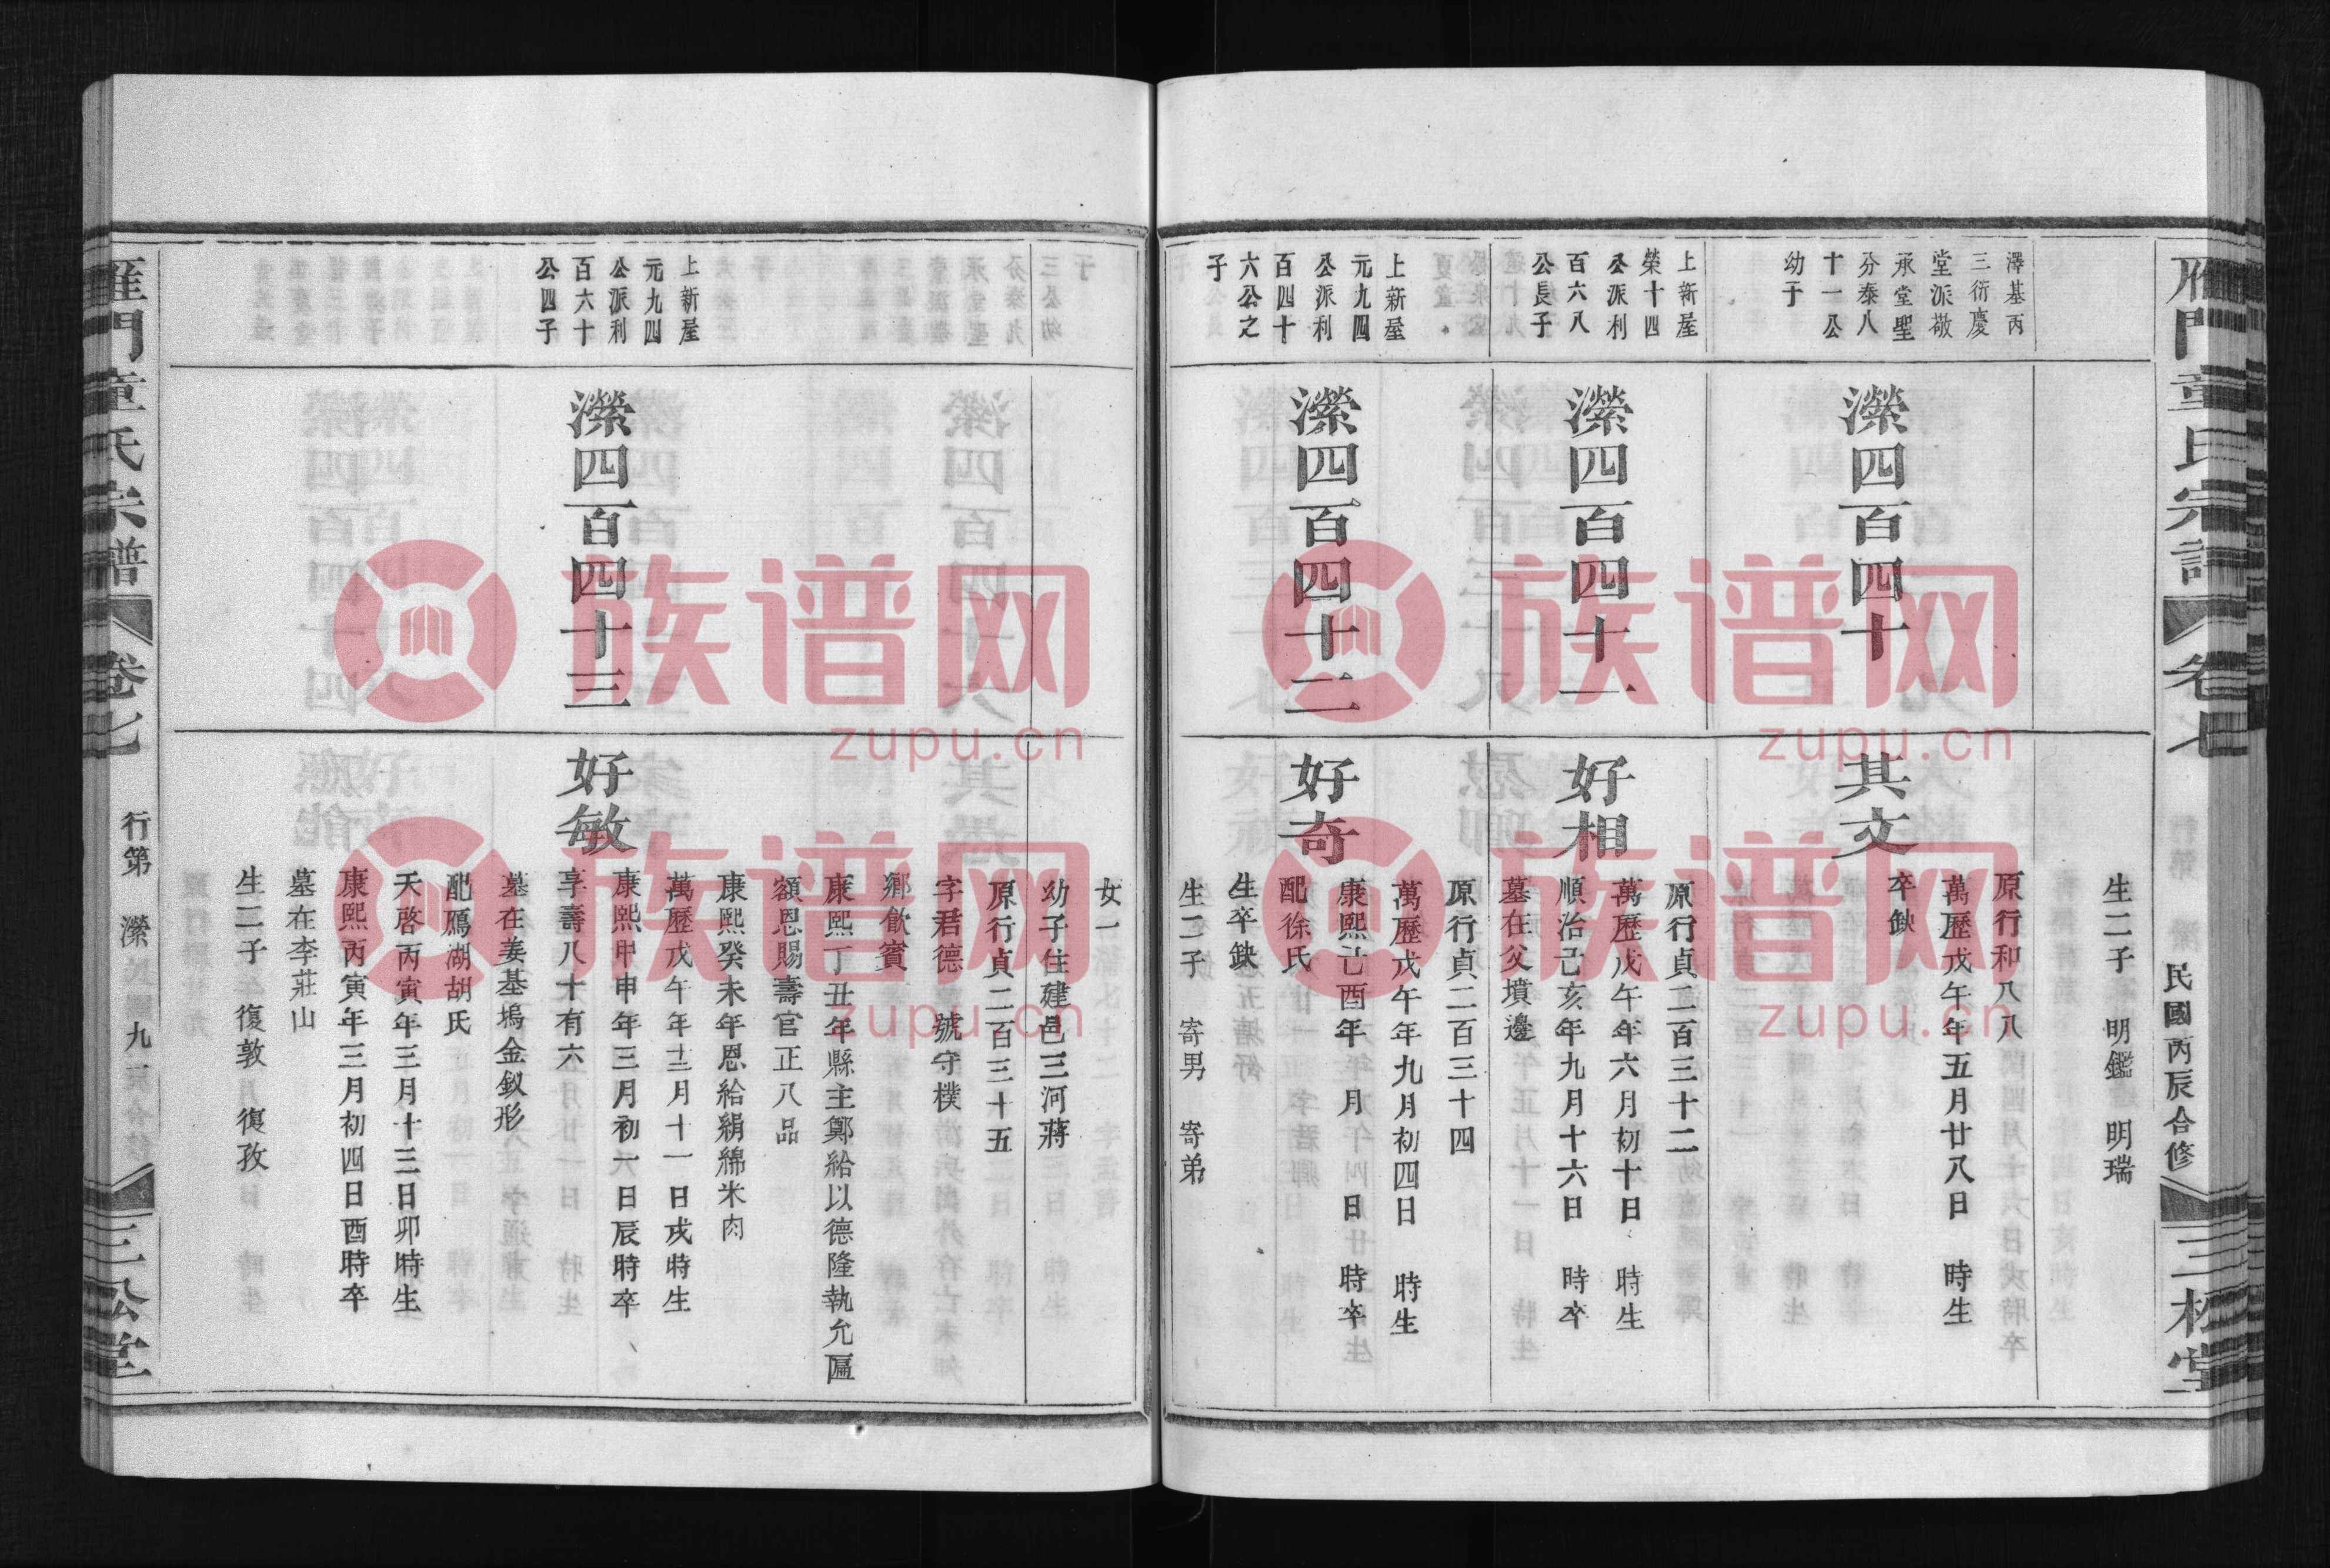 雁門童氏宗譜
卷七
民國丙辰合修
三松堂
生二子　明鑑　明瑞
澤基丙
三衍慶
堂派敬
承堂聖
分泰八
十一公
幼子
瀠四百四十
其文
原行和八八
萬歷戊午年五月廿八日　時生
卒缺
上新屋
榮十四
公派利
百六八
公長子
瀠四百四十一
好相
原行貞二百三十二
萬歷戊午年六月初十日　時生
順治己亥年九月十六日　時卒
墓在父墳邊
上新屋
元九四
公派利
百四十
六公之
子
瀠四百四十二
好奇
原行貞二百三十四
萬歷戊午年九月初四日　時生
康熙己酉年　月　日　時卒
配徐氏
生卒缺
生二子　寄男　寄弟
女一
幼子住建邑三河蔣
上新屋
元九四
公派利
百六十
公四子
瀠四百四十三
好敏
原行貞二百三十五
字君德　號守樸
鄉飲賓
康熙丁丑年縣主鄭給以德隆執允匾
額恩賜壽官正八品
康熙癸未年恩給絹綿米肉
萬歷戊午年十二月十一日戌時生
康熙甲申年三月初一日辰時卒
享壽八十有六
墓在姜基塢金釵形
配鴈湖胡氏
天啓丙寅年三月十三日卯時生
康熙丙寅年三月初四日酉時卒
墓在李莊山
生二子　復敦　復孜
雁門童氏宗譜
卷七
行第　瀠　九
三松堂